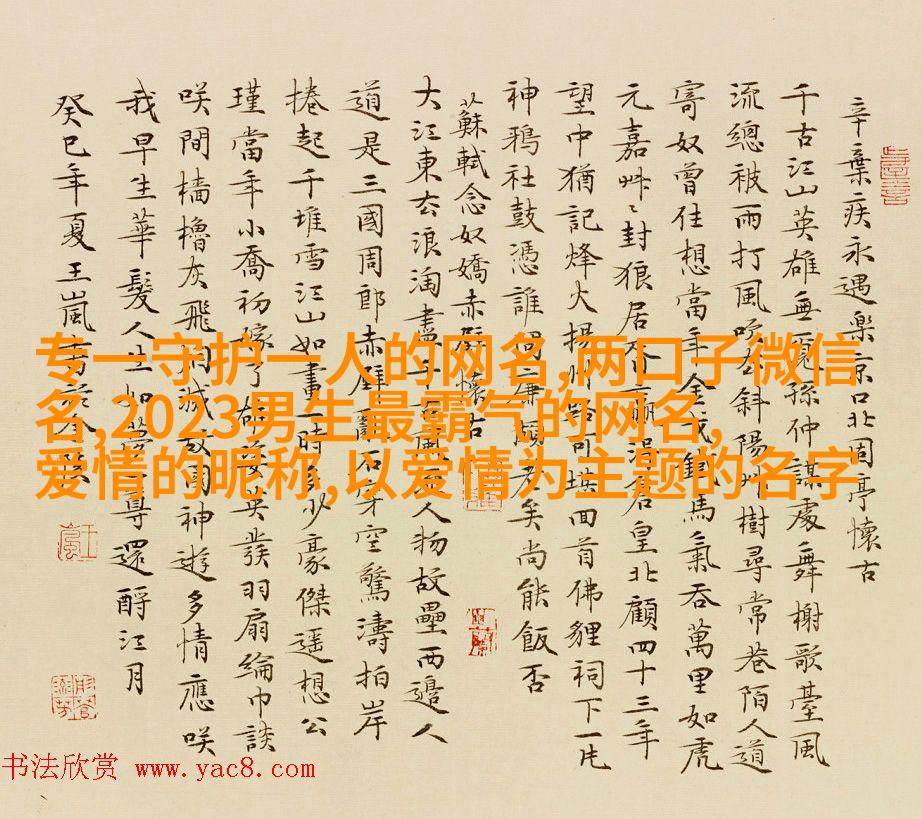 辛棄疾永遇樂京口北固亭懷古
千古江山英雄無覓孫仲謀處舞榭歌臺風
流總被雨打風吹斜陽樹尋常巷陌人道
寄奴曾住想當年金戈鐵馬氣吞萬里如虎
元嘉艸〻封狼居胥贏得倉皇北顧四十三年
望中猶記烽火揚州路可堪回首佛貍祠下一片
神鴉社鼓憑誰問廉頗老矣尚能飯否
蘇軾念奴嬌赤壁懷古
大江東去浪淘盡千古風人物故壘西邊人
道是三國周郎赤壁亂石穿空驚濤拍岸
捲起千堆雪江山如畫一時多少豪傑遥想公
瑾當年小喬初嫁了雄姿英發羽扇綸巾談
咲間檣櫓灰飛烟滅故國神遊多情應咲
我早生華髮人生如夢一尊還酹江月
癸巳年夏王嵐書於
专一守护一人的网名,两口子微信
名,2023男生最霸气的网名,
爱情的昵称,以爱情为主题的名字
书法欣赏 www.yac8.com